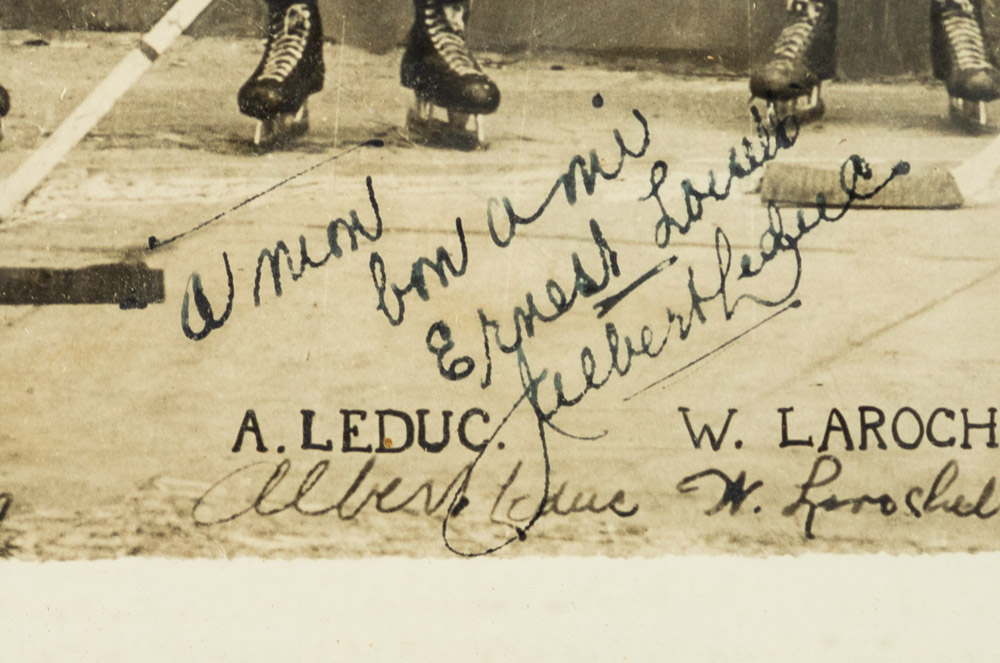 à mon
bon ami
Ernest
Albert Leduc
A. LEDUC. W. LAROCH
Albert Leduc W. Larochel